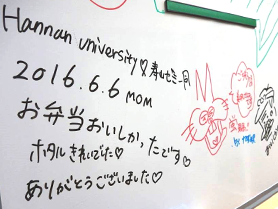 Hannan university♡寿ゼミ一同
2016.6.6 MOM
お弁当おいしかったです♡
ホタルきれいでした♡
ありがとうございました♡